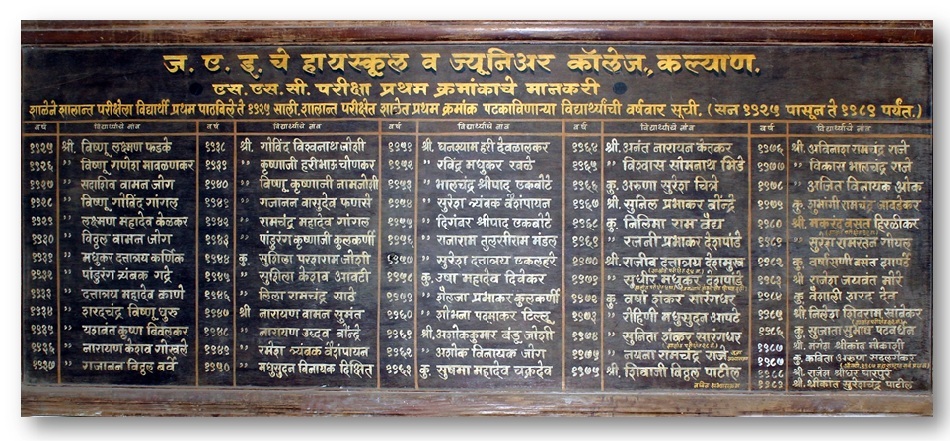 ज. ए. इ. चे हायस्कूल व ज्यूनिअर कॉलेज, कल्याण.
एस. एस. सी. परीक्षा प्रथम क्रमांकाचे मानकरी
शाळेने सालान्त परीक्षेला विद्यार्थी प्रथम पाठविले ते १९२५ साली, शालान्त परीक्षेत शाळेत प्रथम क्रमांक पटकाविणाऱ्या विद्यार्थ्यांची वर्षवार सूची. (सन १९२५ पासून ते १९८९ पर्यंत.)
वर्ष विद्यार्थ्याचे नाव
१९२५ श्री. विष्णू लक्ष्मण फडके
१९२६ " विष्णू गणेश मावळणकर
१९२७ " सदाशिव वामन जोग
१९२८ " विष्णू गोविंद गांगल
१९२९ " लक्ष्मण महादेव केळकर
१९३० " विठ्ठल वामन जोग
१९३१ " मधुकर दत्तात्रय कर्णिक
१९३२ " पांडुरंग त्र्यंबक गद्रे
१९३३ " दत्तात्रय महादेव काणे
१९३४ " शरदचंद्र विष्णू गुरु
१९३५ " यशवंत कृष्ण विवलकर
१९३६ " नारायण केशव गोखले
१९३७ " गजानन विठ्ठल बर्वे
वर्ष विद्यार्थ्याचे नाव
१९३८ श्री. गोविंद विश्वनाथ जोशी
१९३९ " कृष्णाजी हरीभाऊ चौणकर
१९४० " विष्णू कृष्णाजी नामजोशी
१९४१ " गजानन वासुदेव फणसे
१९४२ " रामचंद्र महादेव गांगल
१९४३ " पांडुरंग कृष्णाजी कुलकर्णी
१९४४ कु. सुशिला परशराम जोशी
१९४५ " सुशिला केशव आवटी
१९४६ " लिला रामचंद्र
१९४७ श्री नारायण वामन सुमंत
१९४८ " नारायण उध्दव बोन्द्रे
१९४९ " रमेश त्र्यंबक वैशंपायन
१९५० " मधुसुदन विनायक दिक्षित
वर्ष विद्यार्थ्याचे नाव
१९५१ श्री. घनश्याम हरी देवळालकर
१९५२ " रविंद्र मधुकर रवळे
१९५३ " भालचंद्र श्रीपाद एकबोटे
१९५४ " सुरेश त्र्यंबक वैशंपायन
१९५५ " दिगंबर श्रीपाद एकबोटे
१९५६ " राजाराम तुळसीराम मंडल
१९५७ " सुरेश दत्तात्रय एकलहरे
१९५८ कु. उषा महादेव दिवेकर
१९५९ " शैलजा प्रभाकर कुलकर्णी
१९६० " शोभना पद्माकर टिल्लू
१९६१ श्री. अशोककुमार बंडू जोशी
१९६२ " अशोक विनायक जोग
१९६३ कु. सुषमा महादेव चक्रदेव
वर्ष विद्यार्थ्याचे नाव
१९६४ श्री. अनंत नारायण केतकर
१९६५ " विश्वास सीमनाथ भिडे
१९६६ कु. अरुणा सुरेश चित्रे
१९६७ श्री. सुनिल प्रभाकर बोन्द्रे
१९६८ कु. निलिमा राम वैद्य
१९६९ " रजनी प्रभाकर देशपांडे
१९७० श्री. राजीव दत्तात्रय देशमुख
१९७१ " सुधीर मधुकर देशपांडे
१९७२ कु. वर्षा शंकर सारंगधर
१९७३ " रोहिणी मधुसुदन आपटे
१९७४ " सुनिता शंकर सारंगधर
१९७५ " नयना रामचंद्र राजे
१९७५ श्री. शिवाजी विठ्ठल पाटील
वर्ष विद्यार्थ्याचे नाव
१९७६ श्री. अविनाश रामचंद्र राजे
१९७७ " विकास भालचंद्र राजे
१९७८ " अजित विनायक ओक
१९७९ कु. शुभांगी रामचंद्र
१९८० श्री. मकरंद वसंत हिरळीकर
१९८१ " सुरेश रामरतन गोयल
१९८२ कु. वर्षाराणी वसंत
१९८३ श्री. राजेश जयवंत मोरे
१९८४ कु. वैशाली शरद देव
१९८५ श्री. निलेश शिवराम सोवीकर
१९८६ कु. सुजाता सुभाष पटवर्धन
१९८७ श्री. मंगेश श्रीकांत मोकाशी
१९८७ कु. कविता अरुण सदलगेकर
१९८८ श्री. राजेश श्रीधर घारपुरे
१९८९ श्री. श्रीकांत सुरेशचंद्र पाटील